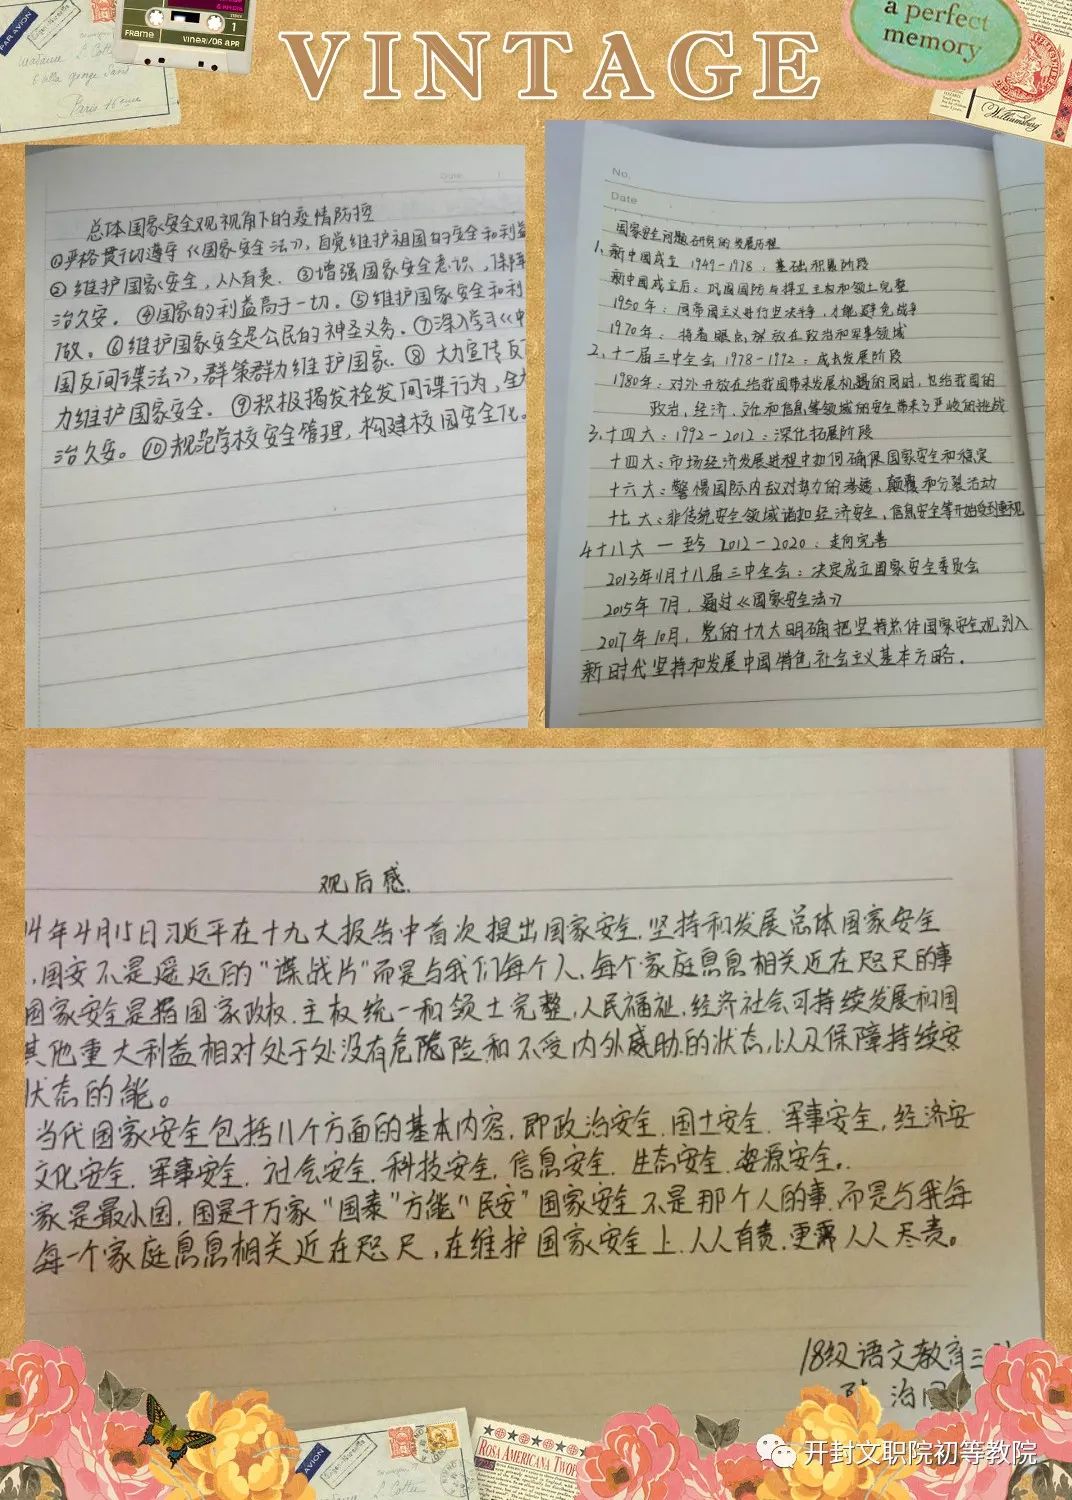 VINTAGE
a perfect
memory
FRAME
1
PAR AVION
Paris
Williamsburg
总体国家安全观视角下的疫情防控
①严格贯彻遵守《国家安全法》，自觉维护祖国的安全和利益
② 维护国家安全，人人有责. ③增强国家安全意识，保障
治久安. ④国家的利益高于一切. ⑤维护国家安全和利
做。⑥维护国家安全是公民的神圣义务. ⑦深入学习《中
国反间谍法》, 群策群力维护国家. ⑧ 大力宣传反
力维护国家安全. ⑨积极揭发检发间谍行为，全
治久安。⑩规范学校安全管理，构建校园安全化。
No.
Date
国家安全问题研究的发展历程
1、新中国成立 1949-1978：基础积累阶段
新中国成立后：巩固国防与捍卫主权和领土完整
1950年：同帝国主义进行坚决斗争，才能避免战争
1970年：将着眼点继放在政治和军事领域
2、十一届三中全会 1978-1992：成长发展阶段
1980年：对外开放在给我国带来发展机遇的同时，也给我国的
政治、经济、文化和信息等领域的安全带来了严峻的挑战
3、十四大：1992-2012：深化拓展阶段
十四大：市场经济发展进程中如何确保国家安全和稳定
十六大：警惕国际内敌对势力的渗透、颠覆和分裂活动
十七大：非传统安全领域诸如经济安全、信息安全等开始受到重视
4十八大 — 至今 2012-2020：走向完善
2013年11月十八届三中全会：决定成立国家安全委员会
2015年7月，通过《国家安全法》
2017年10月，党的十九大明确把坚持总体国家安全观列入
新时代坚持和发展中国特色社会主义基本方略.
观后感.
14年4月15日习近平在十九大报告中首次提出国家安全.坚持和发展总体国家安全
.国安不是遥远的“谍战片”而是与我们每个人.每个家庭息息相关近在咫尺的事
国家安全是指国家政权.主权统一和领土完整,人民福祉.经济社会可持续发展和国
其他重大利益相对处于处没有危险险和不受内外威胁的状态,以及保障持续安
状态的能。
当代国家安全包括11个方面的基本内容.即政治安全.国土安全.军事安全,经济安
文化安全.军事安全.社会安全.科技安全.信息安全.生态安全.资源安全.
家是最小国,国是千万家“国泰”方能“民安”国家安全不是那个人的事.而是与我每
每一个家庭息息相关近在咫尺,在维护国家安全上.人人有责.更需人人尽责。
18级语文教育三
AVION
ROSA AMERICANA
开封文职院初等教院